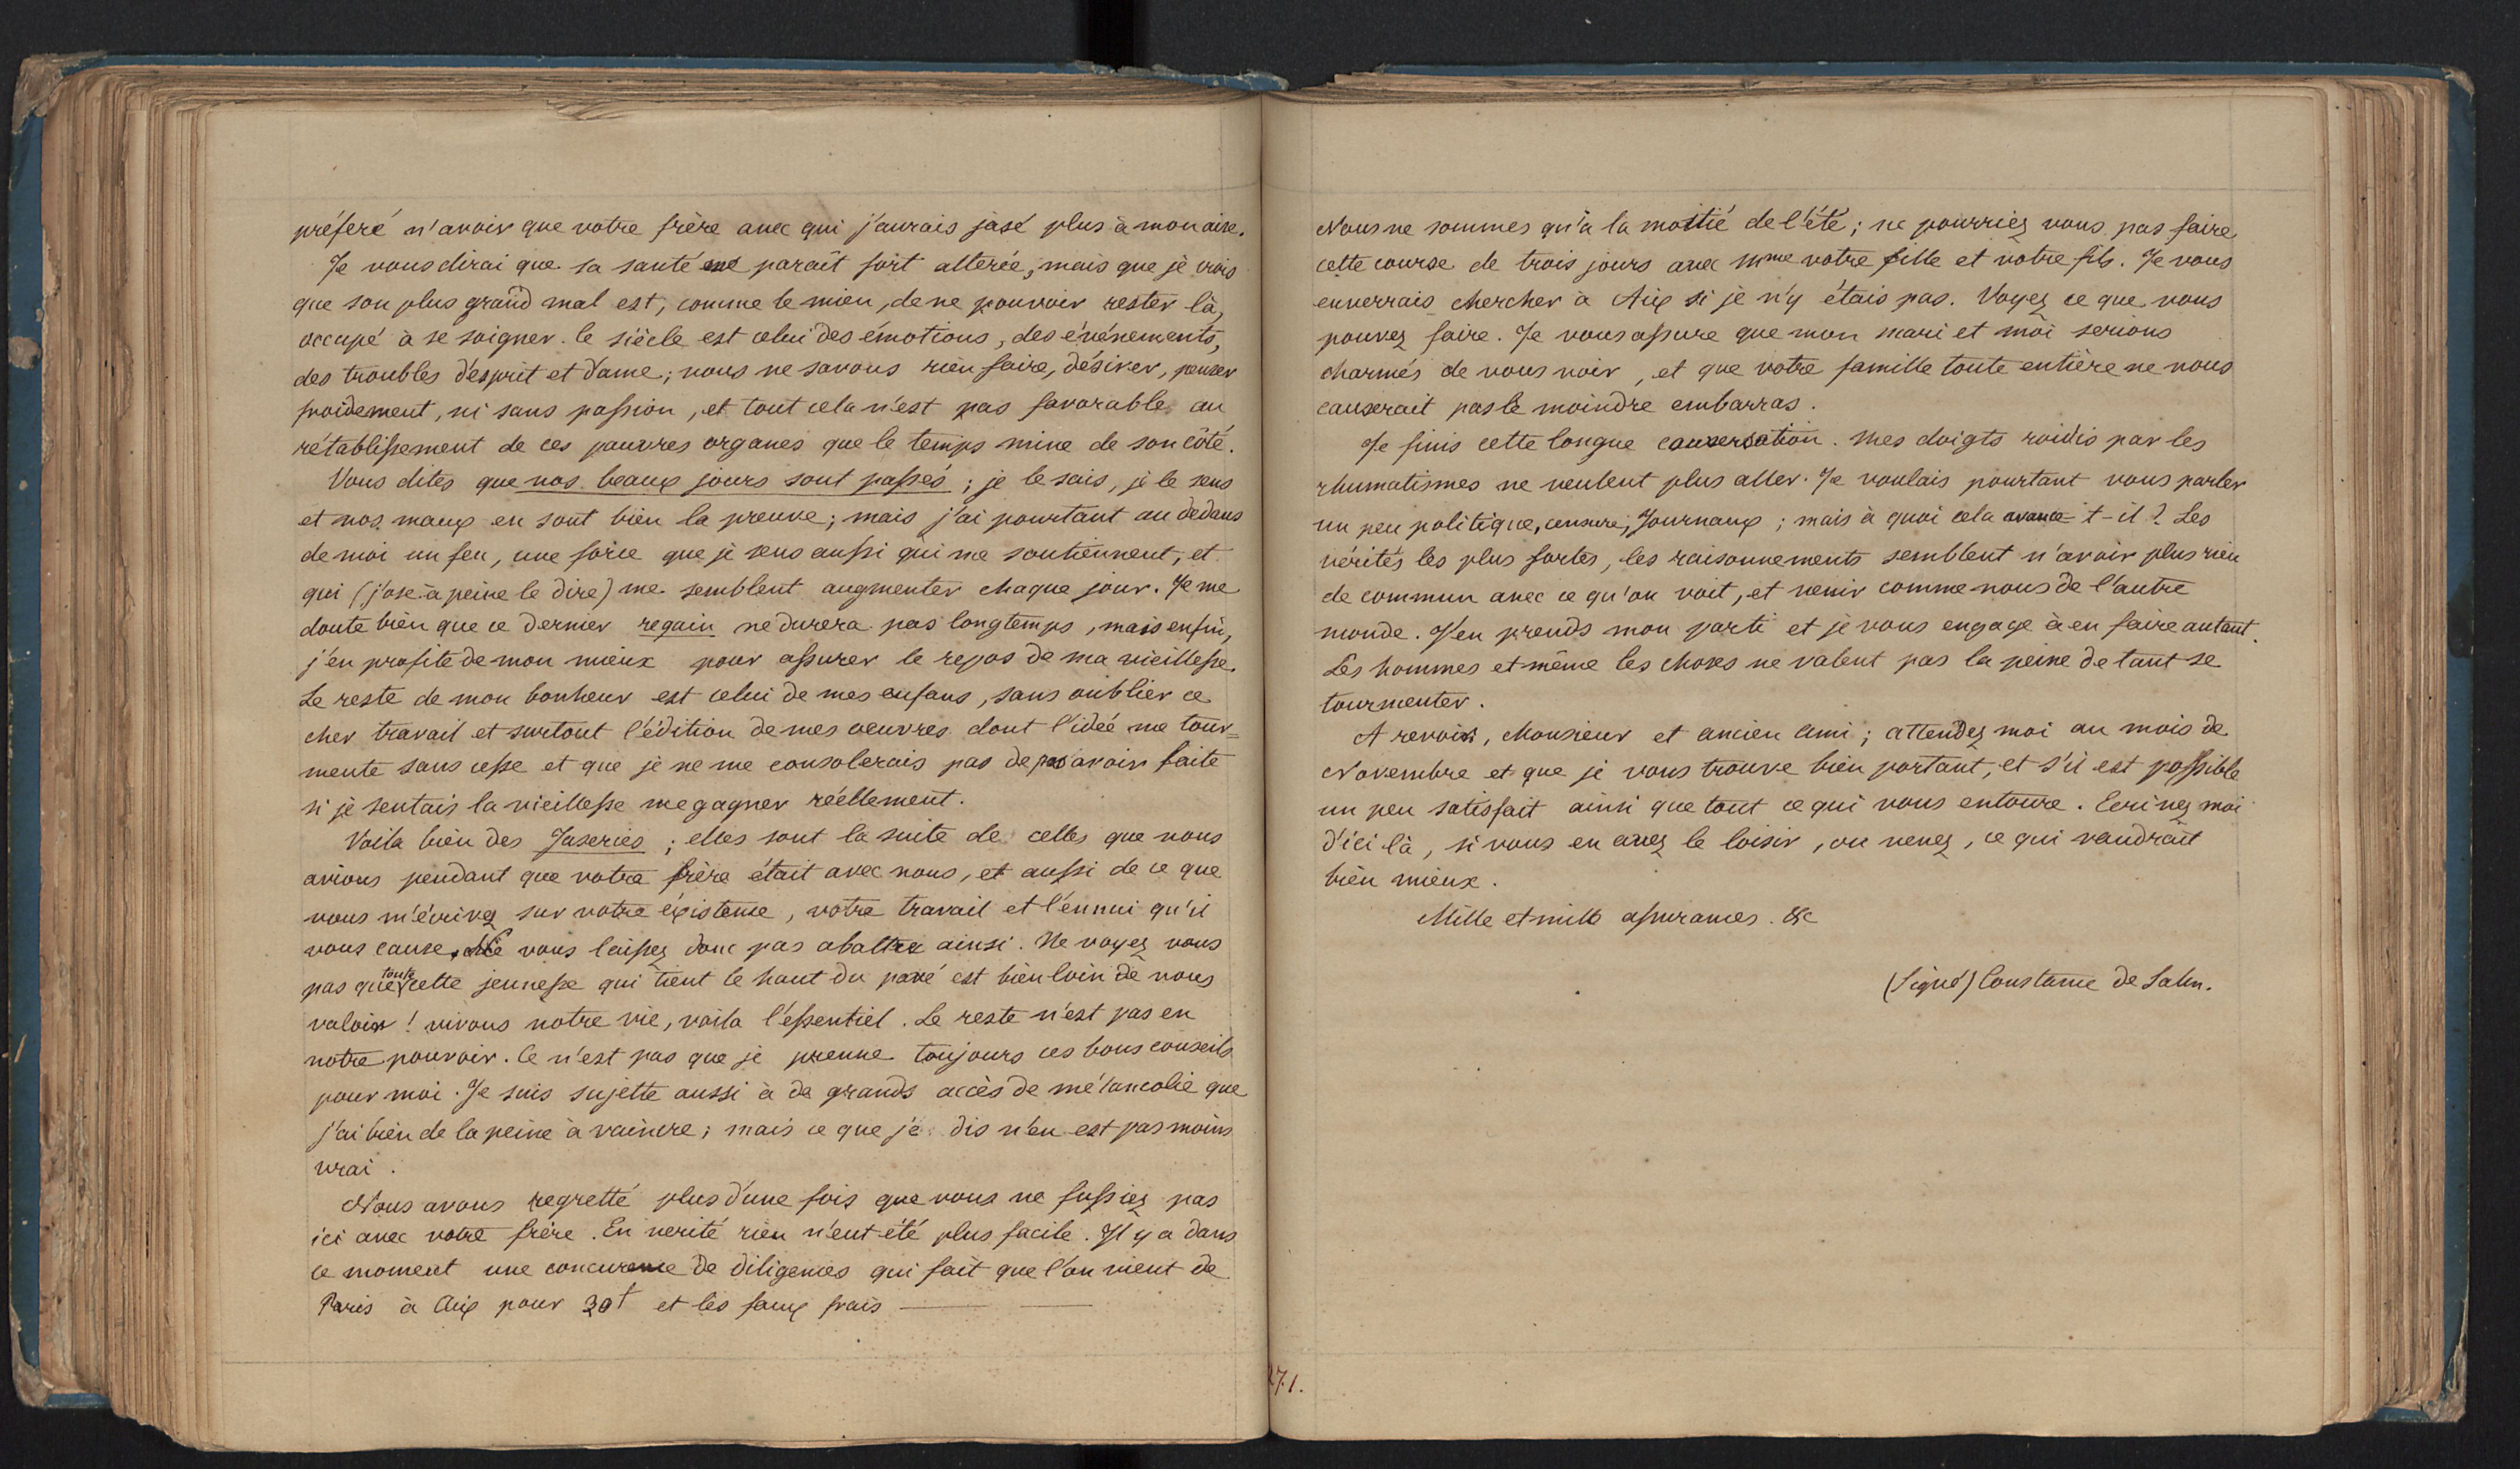 préferé n'avoir que votre frère avec qui j'aurais jasé plus à mon aise.
Je vous dirai que sa santé me paraît fort alterée, mais que je crois
que son plus grand mal est, comme le mien, de ne pouvoir rester là,
occupé à se soigner. le siècle est celui des émotions, des événements,
des troubles d'esprit et d'ame; nous ne savons rien faire, désirer, penser
froidement, ni sans passion, et tout cela n'est pas favorable au
rétablissement de ces pauvres organes que le temps mine de son côté.
Vous dites que nos beaux jours sont passés; je le sais, je le sens
et nos maux en sont bien la preuve; mais j'ai pourtant au dedans
de moi un feu, une force que je sens aussi qui me soutiennent, et
qui (j'ose à peine le dire) me semblent augmenter chaque jour. Je me
doute bien que ce dernier regain ne durera pas longtemps, mais enfin,
j'en profite de mon mieux pour assurer le repos de ma vieillesse.
Le reste de mon bonheur est celui de mes enfans, sans oublier ce
cher travail et surtout l'édition de mes oeuvres dont l'idée me tour=
mente sans cesse et que je ne me consolerais pas de pas avoir faite
si je sentais la vieillesse me gagner réellement.
Voila bien des Jaseries; elles sont la suite de celles que nous
avions pendant que votre frère était avec nous, et aussi de ce que
vous m'écrivez sur votre existence, votre travail et l'ennui qu'il
vous cause. Ne vous laissez donc pas abattre ainsi. Ne voyez vous
pas que toute cette jeunesse qui tient le haut du pavé est bien loin de nous
valoir! vivons notre vie, voila l'essentiel. Le reste n'est pas en
notre pouvoir. Ce n'est pas que je prenne toujours ces bons conseils
pour moi. Je suis sujette aussi à de grands accès de mélancolie que
j'ai bien de la peine à vaincre; mais ce que je dis n'en est pas moins
vrai.
Nous avons regretté plus d'une fois que vous ne fussiez pas
ici avec votre frère. En verité rien n'eut été plus facile. Il y a dans
ce moment une concurence de diligences qui fait que l'on vient de
Paris à Aix pour 30f et les faux frais
Nous ne sommes qu'à la moitié de l'été; ne pourriez vous pas faire
cette course de trois jours avec Mme votre fille et votre fils. Je vous
enverrais chercher à Aix si je n'y étais pas. Voyez ce que vous
pouvez faire. Je vous assure que mon mari et moi serions
charmés de vous voir, et que votre famille toute entière ne nous
causerait pas le moindre embarras.
Je finis cette longue conversation. Mes doigts roidis par les
rhumatismes ne veulent plus aller. Je voulais pourtant vous parler
un peu politique, censure, Journaux; mais à quoi cela avance-t-il? Les
vérités les plus fortes, les raisonnements semblent n'avoir plus rien
de commun avec ce qu'on voit, et venir comme nous de l'autre
monde. J'en prends mon parti et je vous engage à en faire autant.
Les hommes et même les choses ne valent pas la peine de tant se
tourmenter.
A revoir, Monsieur et ancien ami; attendez moi au mois de
Novembre et que je vous trouve bien portant, et s'il est possible
un peu satisfait ainsi que tout ce qui vous entoure. Ecrivez moi
d'ici là, si vous en avez le loisir, ou venez, ce qui vaudrait
bien mieux.
Mille et mille assurances. &c
(Signé) Constance de Salm.
271.